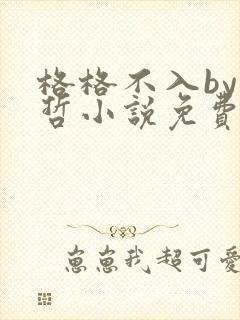 格格不入by
哲小説免費
崽崽我超可愛